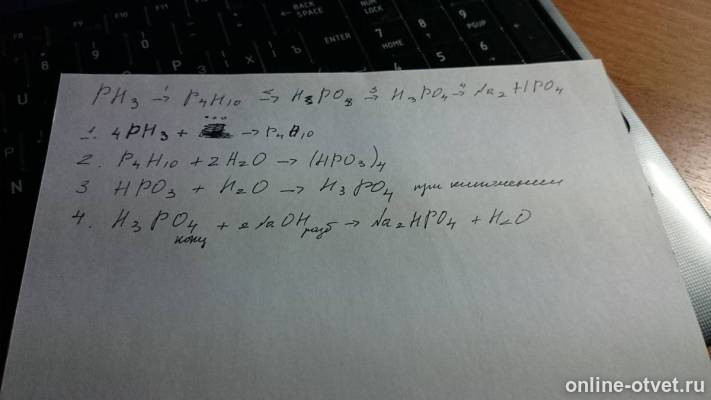 BACK SPACE
NUM LOCK
ENTER
HOME
PGUP
7
8
9
4
5
6
8
9
0
PH3 →1 P4H10 →2 H3PO3 →3 H3PO4 →4 Na2HPO4
1. 4PH3 + ... → P4H10
2. P4H10 + 2H2O → (HPO3)4
3 HPO3 + H2O → H3PO4 при кипячении
4. H3PO4 конц + 2NaOH разб → Na2HPO4 + H2O
online-otvet.ru